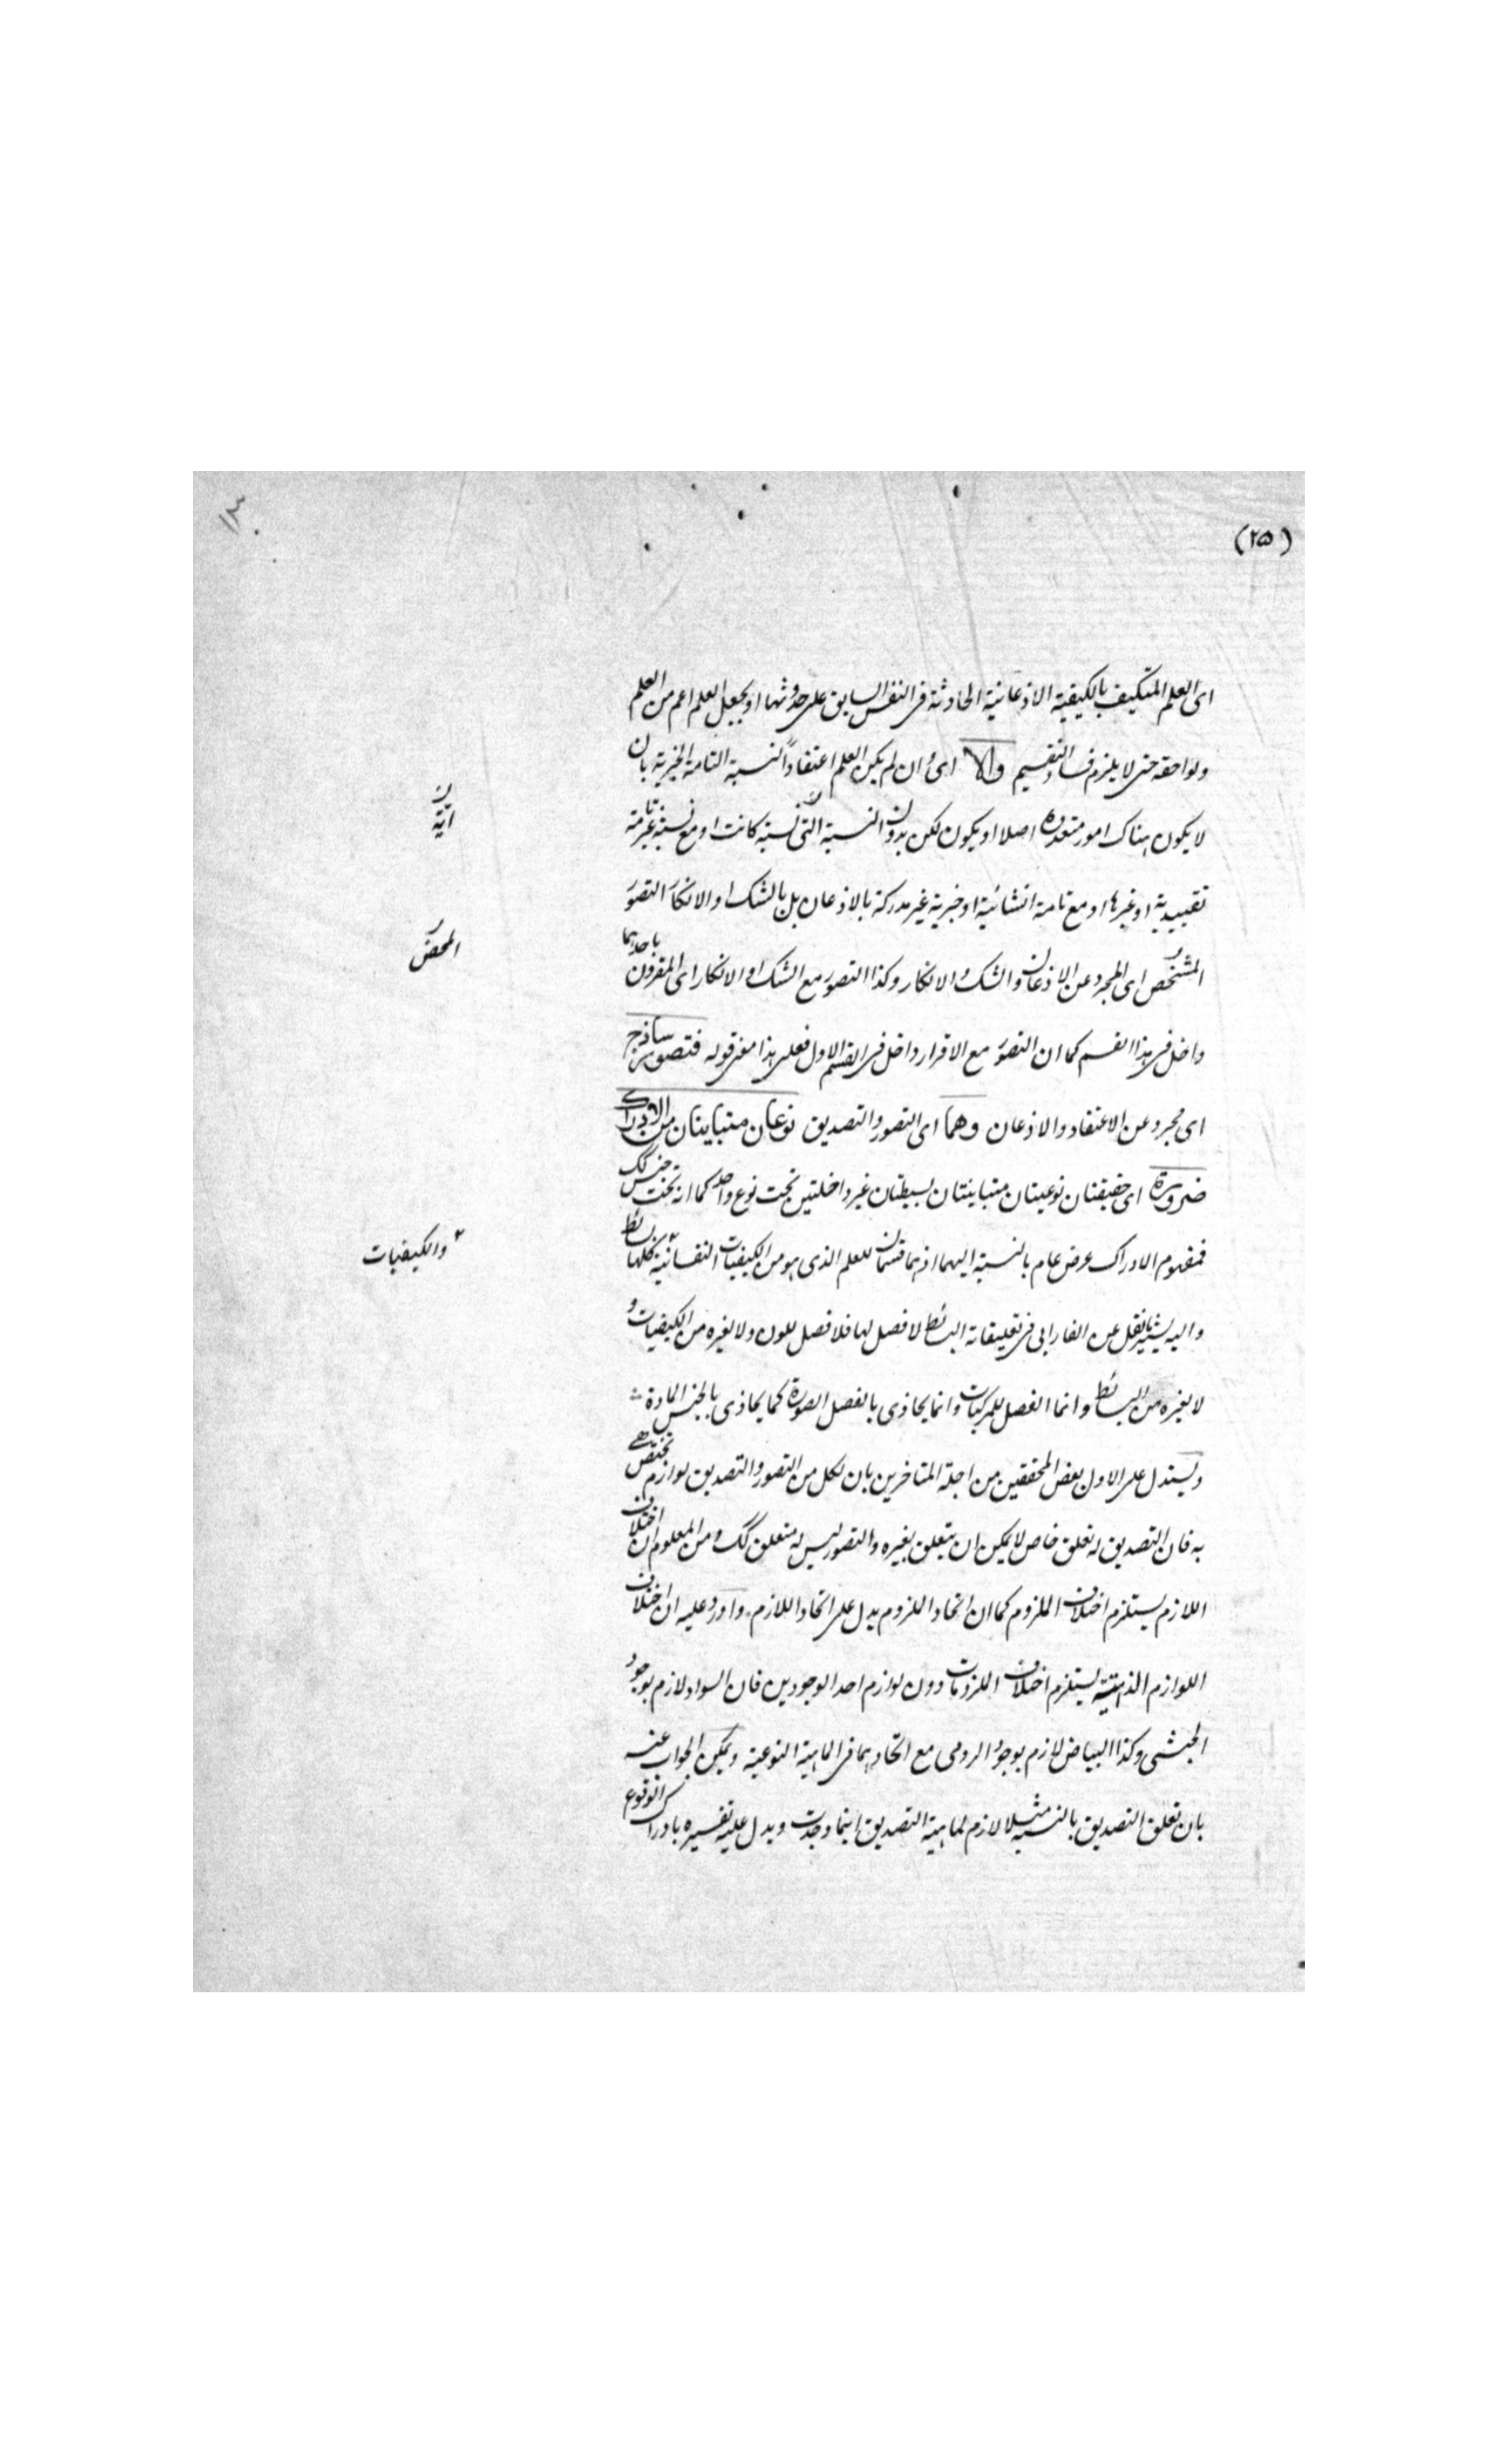 (٢٥)
اى العلم المتكيف بالكيفية الاذعانية الحادثة فى النفس السابق على حدوثها او يجعل العلم اعم من العلم
ولواحقه حتى لا يلزم فساد التقسيم والا اى وان لم يكن العلم اعتقاداً لنسبة التامة الخبرية بان
لا يكون هناك امور متعددة اصلا او يكون لكن بدون النسبة اىّ نسبة كانت او مع نسبة غير تامة
اىّة
تقييدية او غيرها او مع تامة انشائية او خبرية غير مدركة بالاذعان بل بالشك او الانكار التصور
المشخص اى المجرد عن الاذعان والشك والانكار وكذا التصور مع الشك او الانكار اى المقرون باحدهما
المحض
داخل فى هذا القسم كما ان التصور مع الاقرار داخل فى القسم الاول فعلى هذا معنى قوله فتصور ساذج
اى مجرد عن الاعتقاد والاذعان وهما اى التصور والتصديق نوعان متباينان من الادراك
ضرورة اى حقيقتان نوعيتان متباينتان بسيطتان غير داخلتين تحت نوع واحد كما انه تحت جنس كك
فمفهوم الادراك عرض عام بالنسبة اليهما اذ هما قسمان للعلم الذى هو من الكيفيات النفسانية كلها بسائط
والكيفيات
واليه يشير ما نقل عن الفارابى فى تعليقاته البسائط لا فصل لها فلا فصل للون ولا لغيره من الكيفيات و
لا لغيره من البسائط وانما الفصل للمركبات وانما يحاذى بالفصل الصورة كما يحاذى بالجنس المادة
ويستدل على الاول بعض المحققين من اجلة المتاخرين بان لكل من التصور والتصديق لوازم تختص هى
به فان التصديق له تعلق خاص لا يمكن ان يتعلق بغيره والتصور ليس له متعلق كك ومن المعلوم ان اختلاف
اللازم يستلزم اختلاف الملزوم كما ان اتحاد الملزوم يدل على اتحاد اللازم واورد عليه ان اختلاف
اللوازم الذهنية يستلزم اختلاف الملزومات دون لوازم احد الوجودين فان السواد لازم لوجود
الحبشى وكذا البياض لازم لوجود الرومى مع اتحادهما فى الماهية النوعية ويمكن الجواب عنه
بان تعلق التصديق بالنسبة مثلا لازم لماهية التصديق اينما وجدت ويدل عليه تفسيره بادراك الوقوع